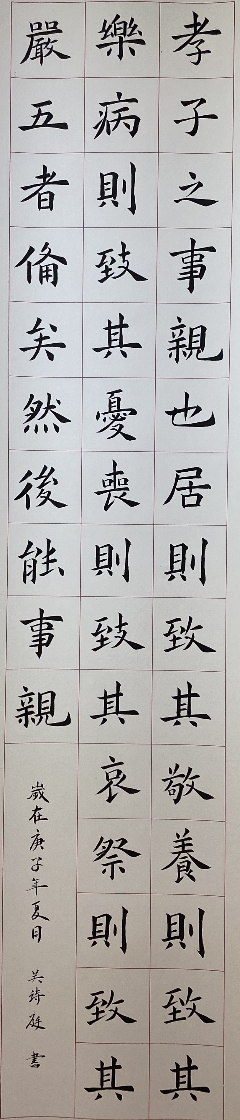 孝子之事親也居則致其敬養則致其
樂病則致其憂喪則致其哀祭則致其
嚴五者備矣然後能事親
歲在庚子年夏日 吳綺庭 書